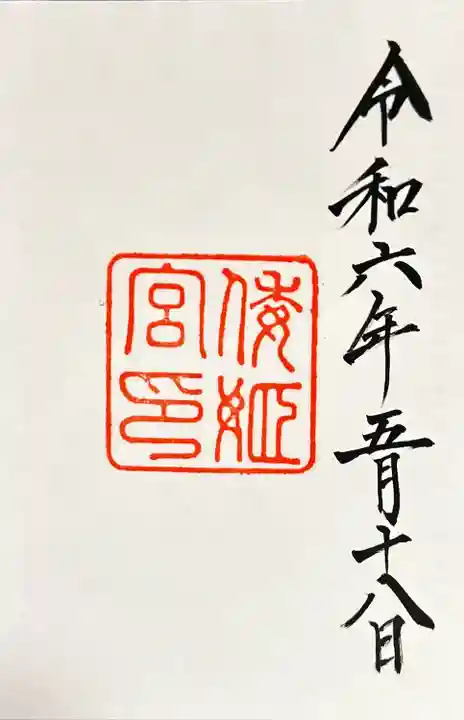 令和六年五月十八日
倭姫
宮印